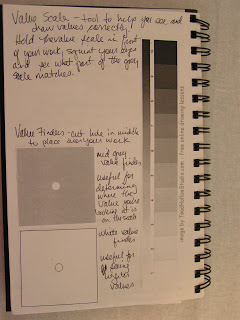 Value Scale - tool to help you see and
draw values correctly.
Hold the value scale in front
of your work, squint your eyes
and see what part of the grey
scale matches.
Value Finders - cut hole in middle
to place over your work
mid grey
value finder
useful for
determining
where the
value you're
looking at is
on the scale
white value
finder
useful for
seeing
lighter
values